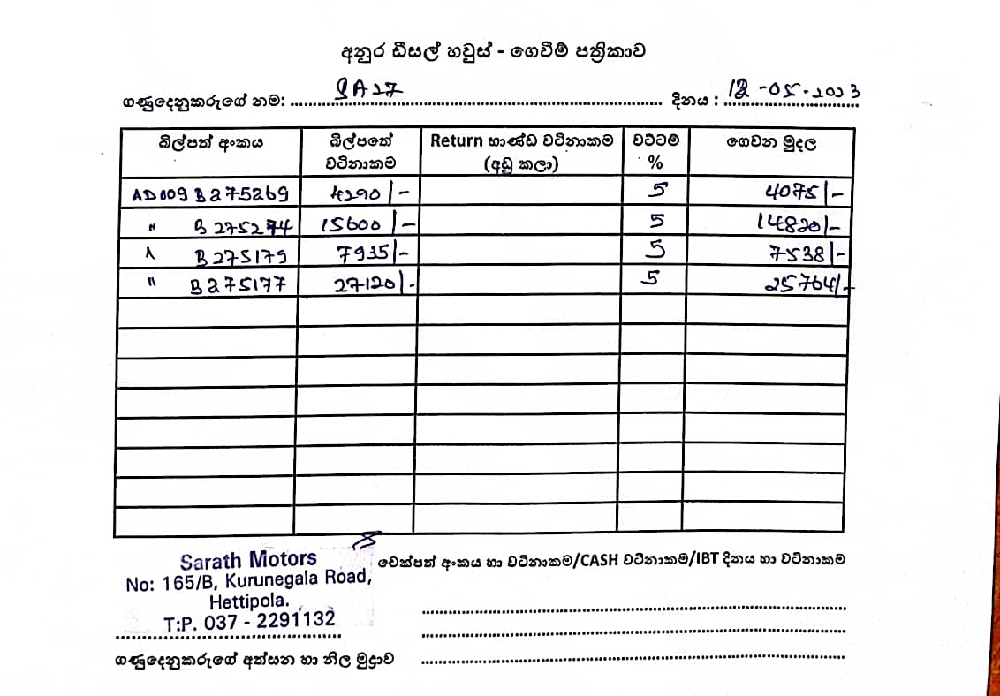 අනුර ඩීසල් හවුස් - ගෙවීම් පත්‍රිකාව
ගණුදෙනුකරුගේ නම: SA27 දිනය : 12-05-2023
බිල්පත් අංකය බිල්පතේ වටිනාකම Return භාණ්ඩ වටිනාකම (අඩු කලා) වට්ටම් % ගෙවන මුදල
AD009 B275269 4290/- 5 4075/-
" B275274 15600/- 5 14820/-
B275179 7935/- 5 7538/-
" B275177 27120/- 5 25764/-
Sarath Motors
No: 165/B, Kurunegala Road,
Hettipola.
T:P. 037 - 2291132
චෙක්පත් අංකය හා වටිනාකම/CASH වටිනාකම/IBT දිනය හා වටිනාකම
ගණුදෙනුකරුගේ අත්සන හා නිල මුද්‍රාව